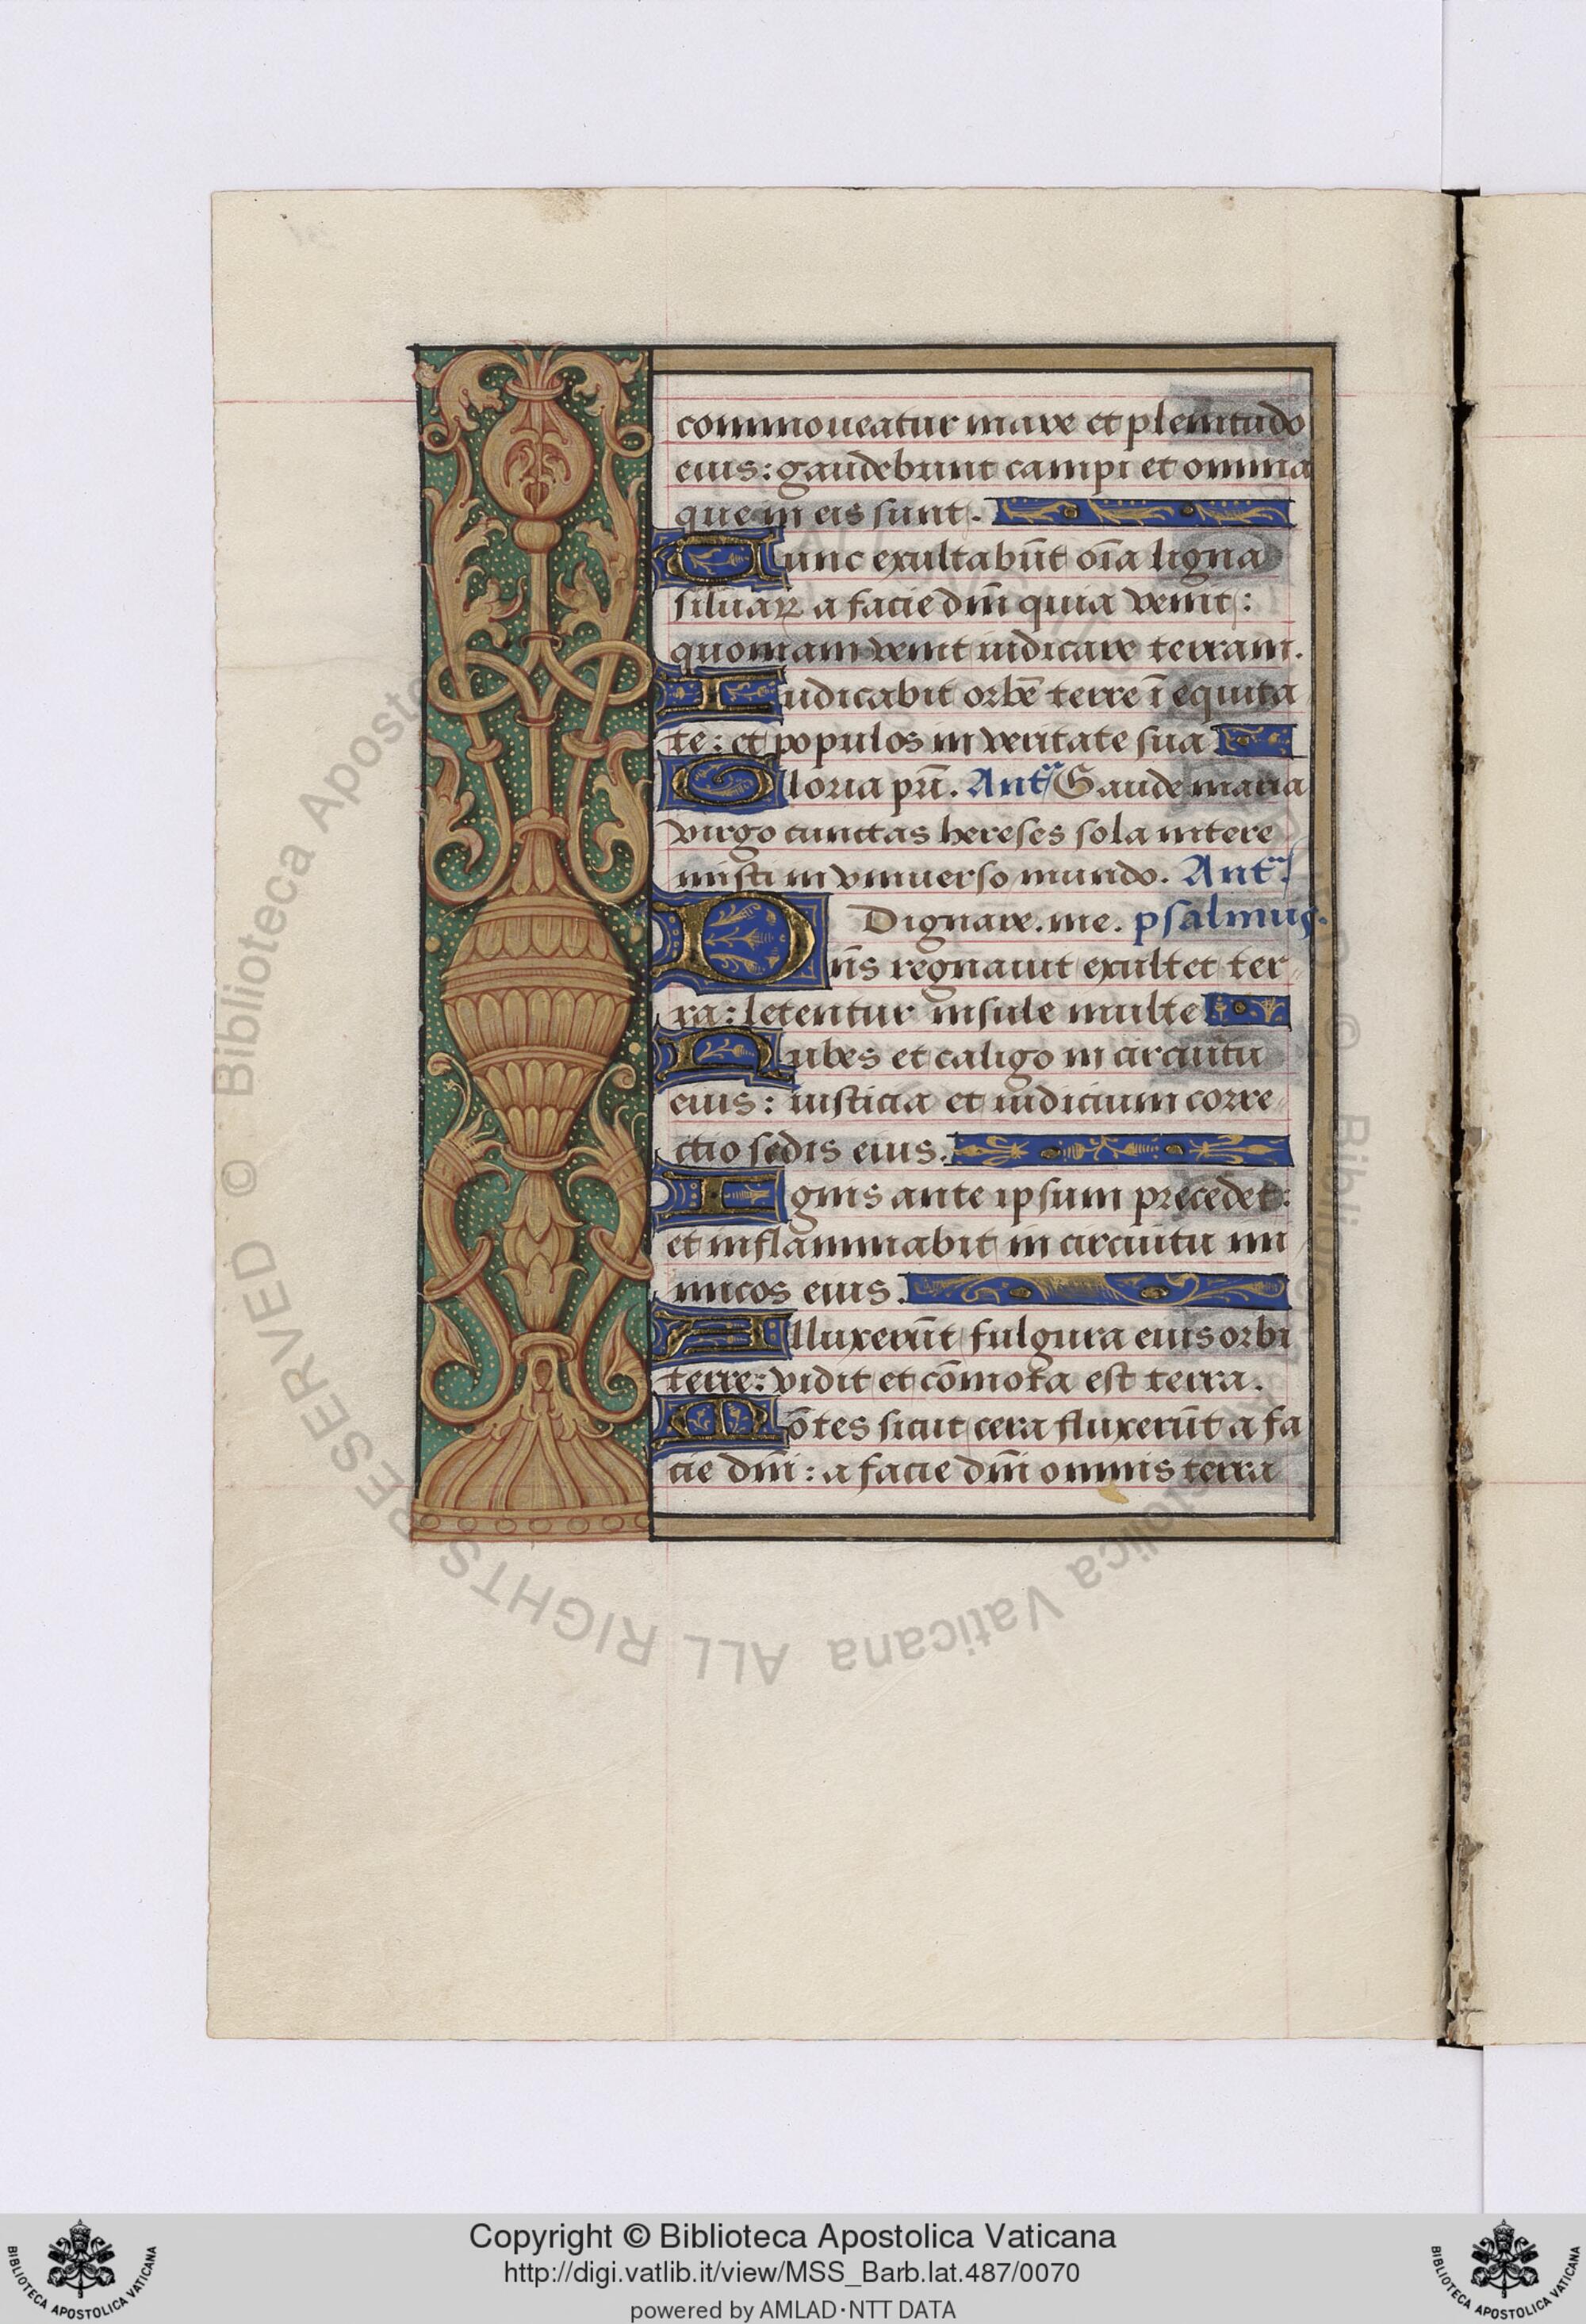 commoueatur mare et plenitudo
eius: gaudebunt campi et omnia
que in eis sunt.
Tunc exultabūt oīa ligna
siluaꝝ a facie dn̄i quia venit:
quoniam venit iudicare terram.
Iudicabit orbē terre ī equita
te: et populos in veritate sua
Gloria pr̄i. Antᵃ Gaude maria
virgo cunctas hereses sola intere
misti in vniuerso mundo. Antᵃ
Dignare. me. psalmus.
Dn̄s regnauit exultet ter
ra: letentur insule multe
Nubes et caligo in circuitu
eius: iusticia et iudicium corre
ctio sedis eius.
Ignis ante ipsum precedet:
et inflammabit in circuitu ini
micos eius.
Illuxerūt fulgura eius orbi
terre: vidit et cōmota est terra.
Mōtes sicut cera fluxerūt a fa
cie dn̄i: a facie dn̄i omnis terra
© Biblioteca Apostolica Vaticana ALL RIGHTS RESERVED
Copyright © Biblioteca Apostolica Vaticana
http://digi.vatlib.it/view/MSS_Barb.lat.487/0070
powered by AMLAD·NTT DATA
BIBLIOTECA APOSTOLICA VATICANA
BIBLIOTECA APOSTOLICA VATICANA